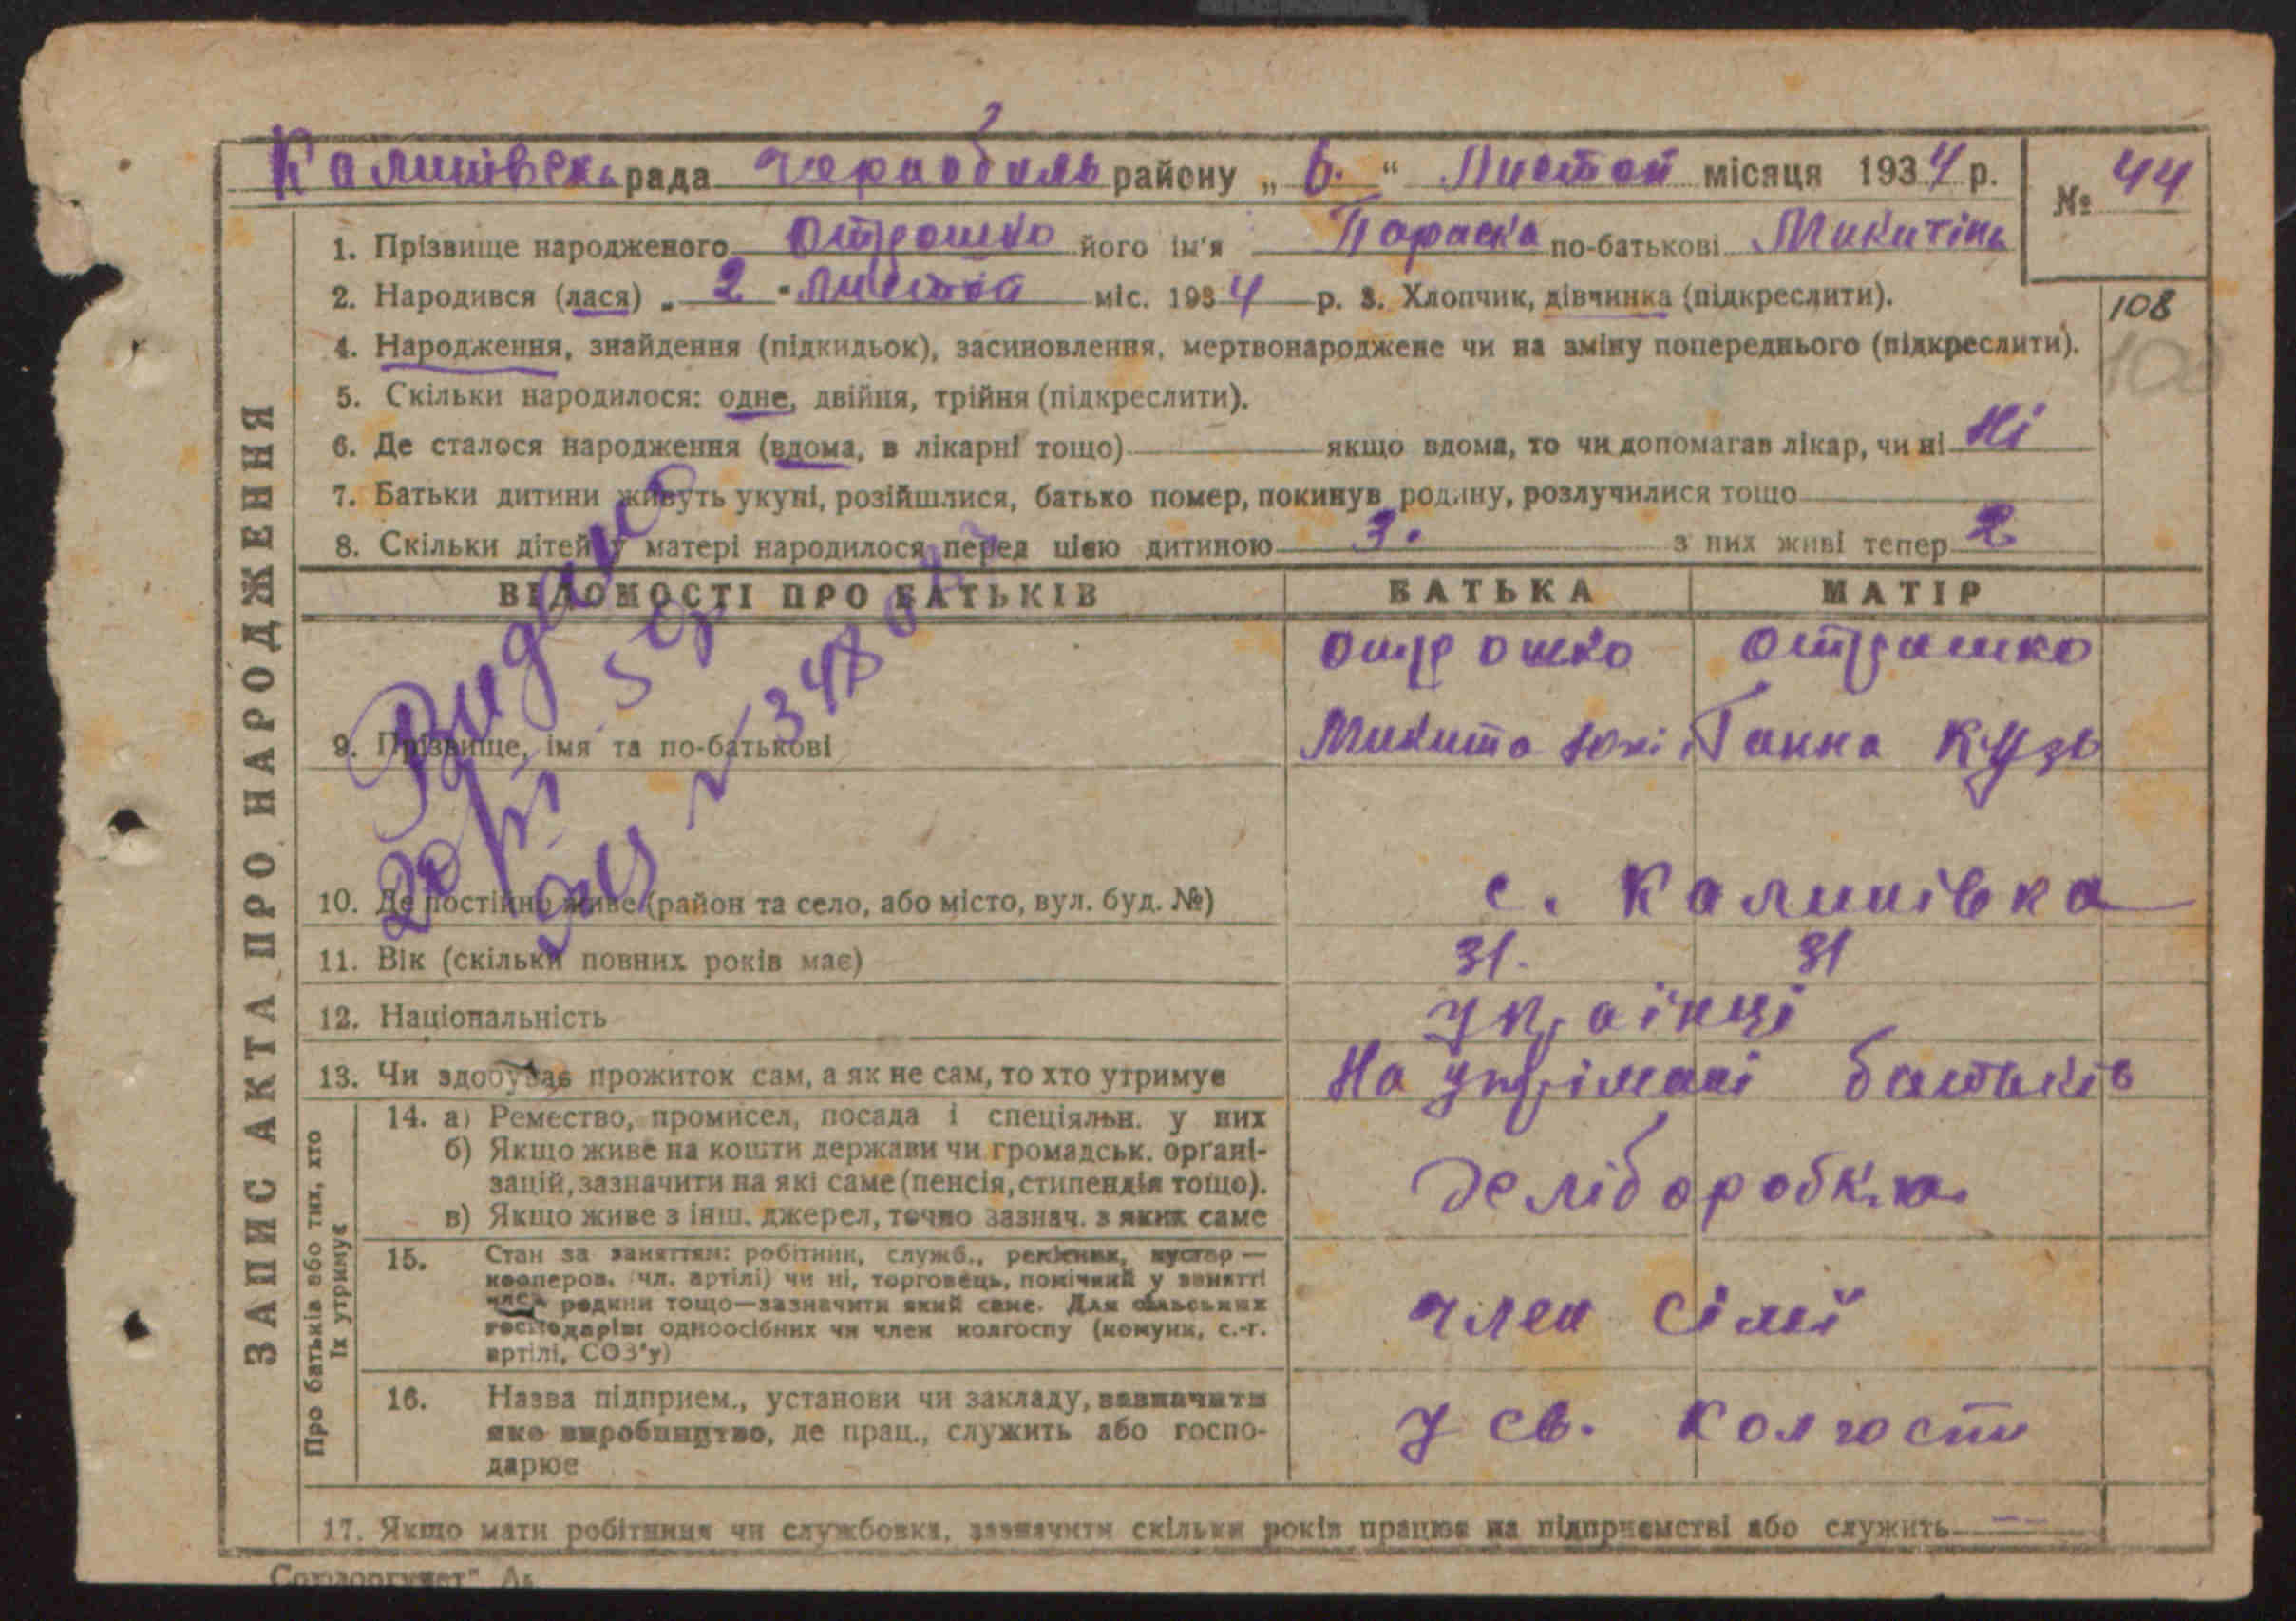 Калинівськ рада Чорнобиль району „ 6. " Листоп місяця 1934 р.
№ 44
1. Прізвище народженого Отрошко його ім'я Параска по-батькові Микитівн
2. Народився (лася) „ 2 " листоп міс. 1934 р. 3. Хлопчик, дівчинка (підкреслити).
108
4. Народження, знайдення (підкидьок), засиновлення, мертвонароджене чи на зміну попереднього (підкреслити).
5. Скільки народилося: одне, двійня, трійня (підкреслити).
6. Де сталося народження (вдома, в лікарні тощо) якщо вдома, то чи допомагав лікар, чи ні Ні
7. Батьки дитини живуть укупі, розійшлися, батько помер, покинув родину, розлучилися тощо
8. Скільки дітей у матері народилося перед цією дитиною 3. з них живі тепер 2
ВІДОМОСТІ ПРО БАТЬКІВ БАТЬКА МАТІР
Отрошко Отрошко
9. Прізвище, імя та по-батькові Микита Ганна Кузь
Видано
348
10. Де постійно живе (район та село, або місто, вул. буд. №) с. Калинівка
11. Вік (скільки повних років має) 31. 31
12. Національність українці
13. Чи здобуває прожиток сам, а як не сам, то хто утримує На утрімані батьків
14. а) Ремество, промисел, посада і спеціяльн. у них
б) Якщо живе на кошти держави чи громадськ. органі-
зацій, зазначити на які саме (пенсія, стипендія тощо).
в) Якщо живе з інш. джерел, точно зазнач. з яких саме
15. Стан за заняттям: робітник, служб., ремісник, кустар —
кооперов. (чл. артілі) чи ні, торговець, помічний у занятті
член родини тощо—зазначити який саме. Для сільських
господарів: одноосібних чи член колгоспу (комуни, с.-г.
артілі, СОЗ'у)
член сімї
16. Назва підприєм., установи чи закладу, зазначити
яке виробництво, де прац., служить або госпо-
дарює
У св. колгоспи
17. Якщо мати робітниця чи службовка, зазначити скільки років працює на підприємстві або служить
ЗАПИС АКТА ПРО НАРОДЖЕННЯ
Про батьків або тих, хто
їх утримує